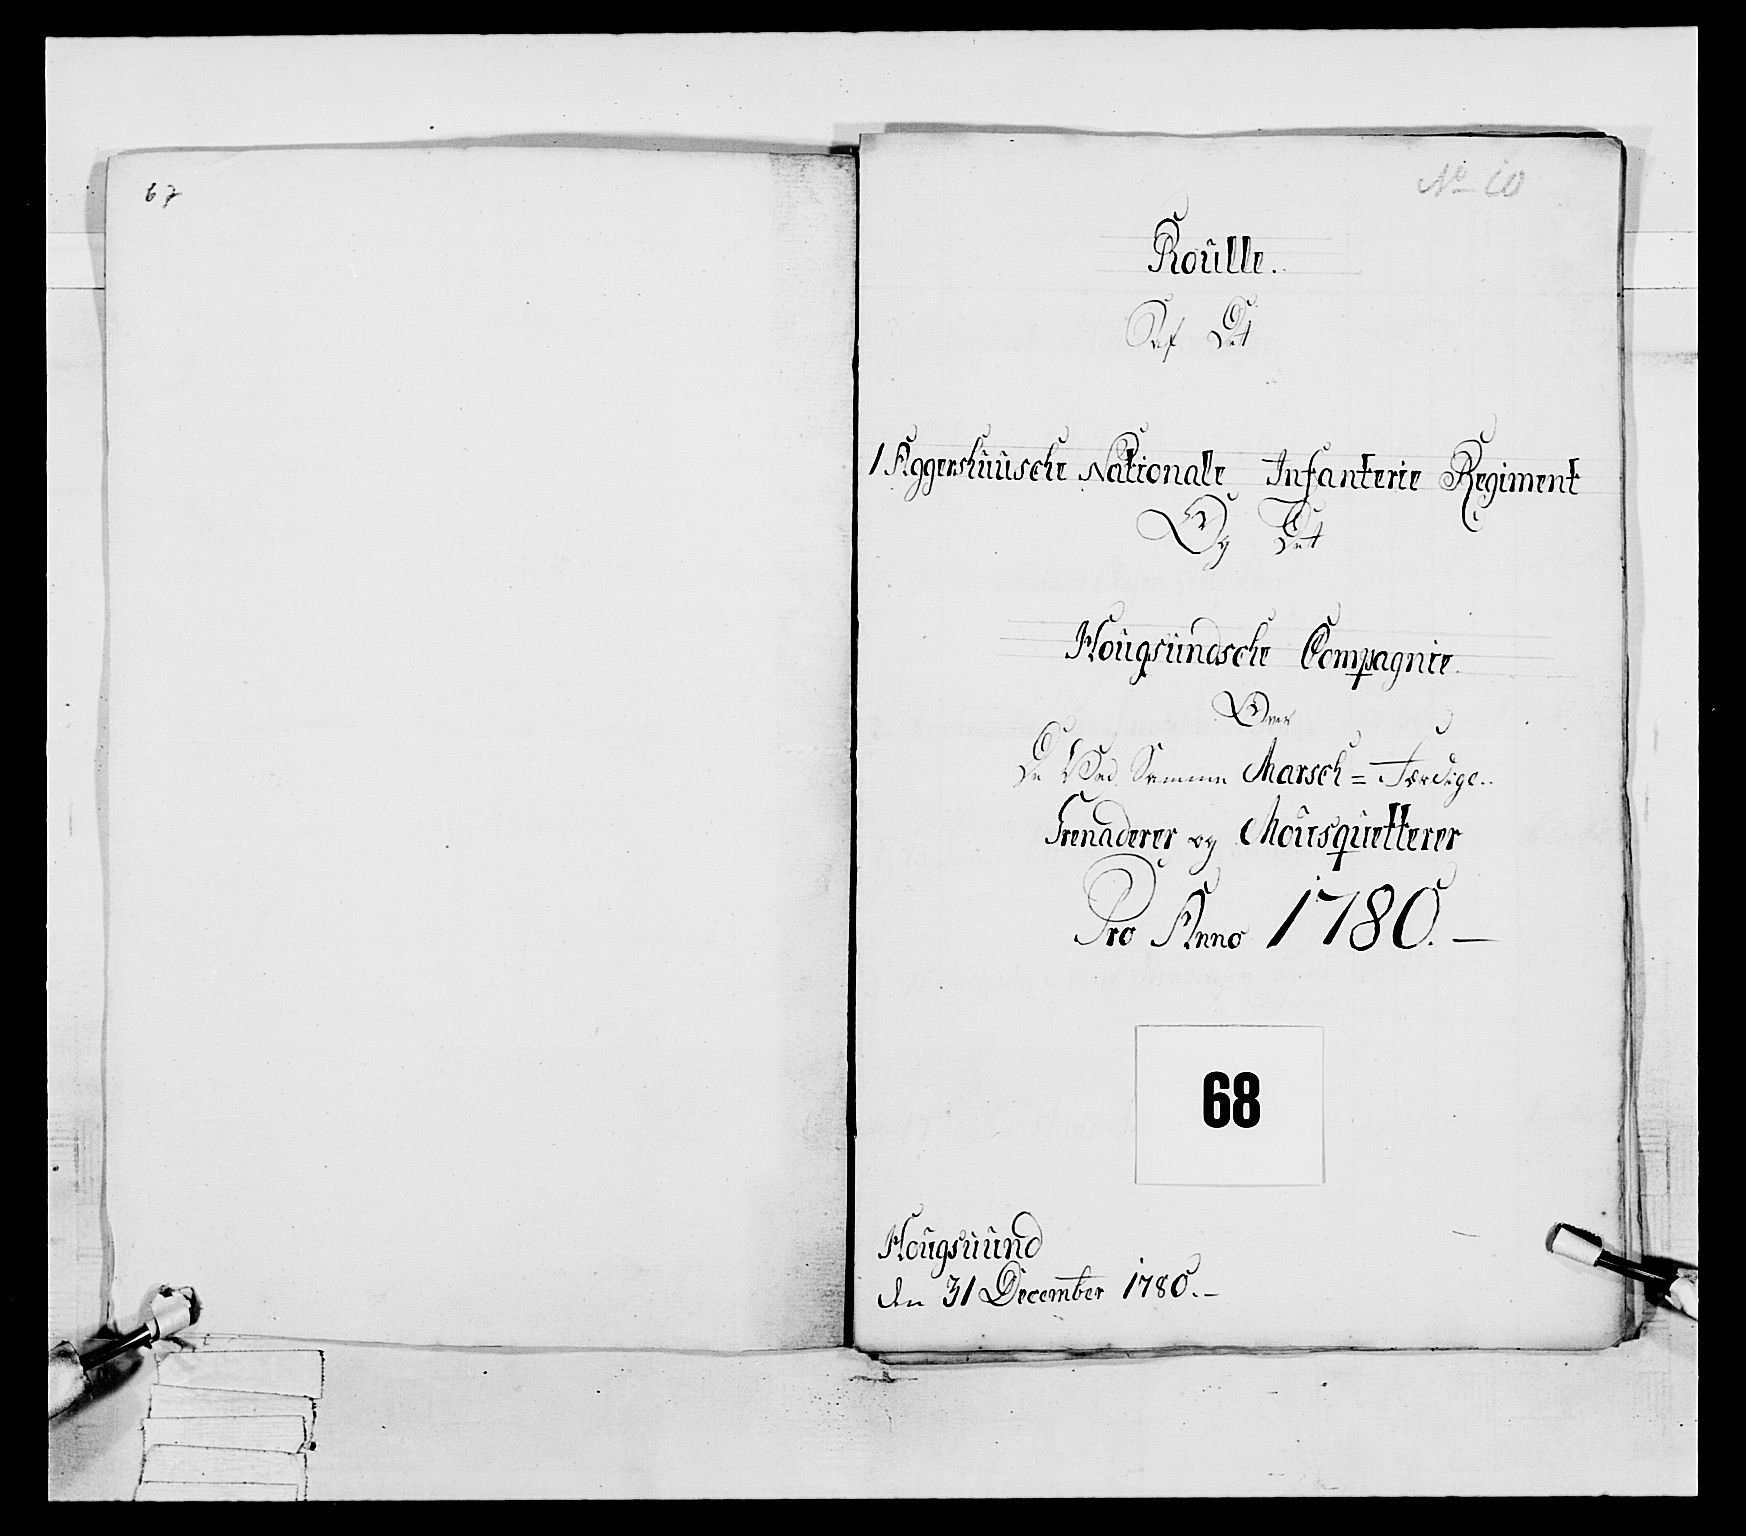 67
No 60
Roûlle.
Af Det
1 Aggershûûsche Nationale Infanterie Regiment
Og Det
Hoûgsûndsche Compagnie
Over
De Ved Samme Marsch = Færdige..
Grenaderer og Moûsqûetterer
Pro Anno 1780. —
68
Hoûgsûûnd
den 31 December 1780. —